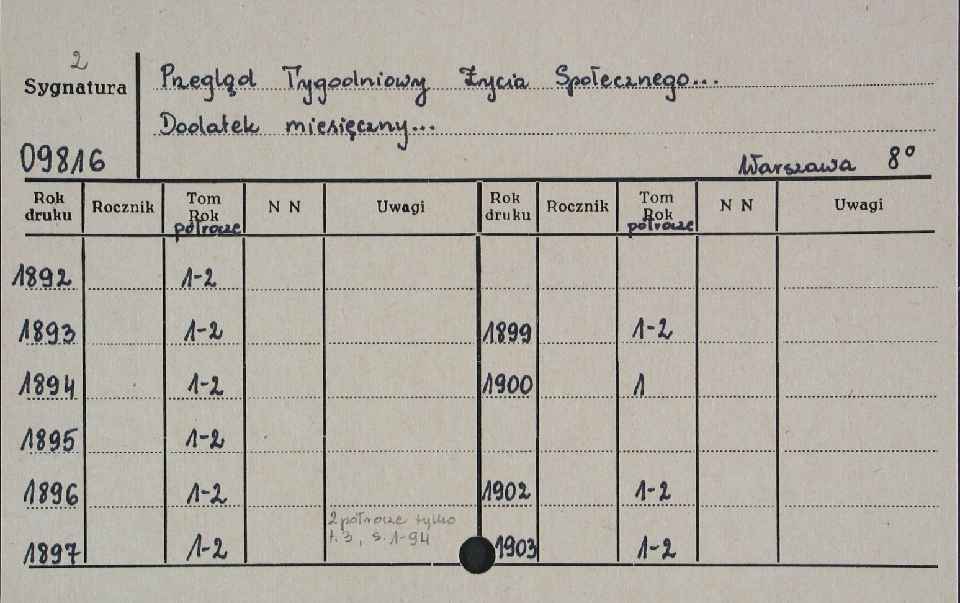 2
Sygnatura
Przegląd Tygodniowy Życia Społecznego...
Dodatek miesięczny...
09816
Warszawa 8°
Rok druku Rocznik Tom Rok półrocze N N Uwagi Rok druku Rocznik Tom Rok półrocze N N Uwagi
1892 1-2
1893 1-2 1899 1-2
1894 1-2 1900 1
1895 1-2
1896 1-2 1902 1-2
2 półrocze tylko
t. 3, s. 1-94
1897 1-2 1903 1-2